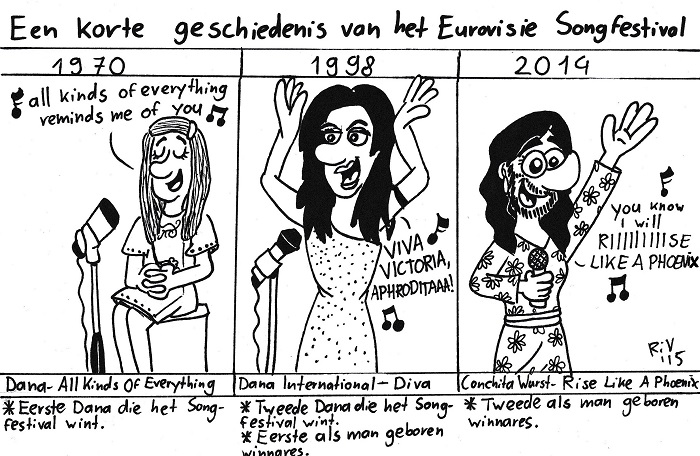 Een korte geschiedenis van het Eurovisie Songfestival
1970
all kinds of everything
reminds me of you
Dana - All Kinds Of Everything
* Eerste Dana die het Song-
festival wint.
1998
VIVA
VICTORIA,
APHRODITAAA!
Dana International - Diva
* Tweede Dana die het Song-
festival wint.
* Eerste als man geboren
winnares.
2014
you know
I will
RIIIIIIIIISE
LIKE A PHOENIX
RiV
'15
Conchita Wurst - Rise Like A Phoenix
* Tweede als man geboren
winnares.